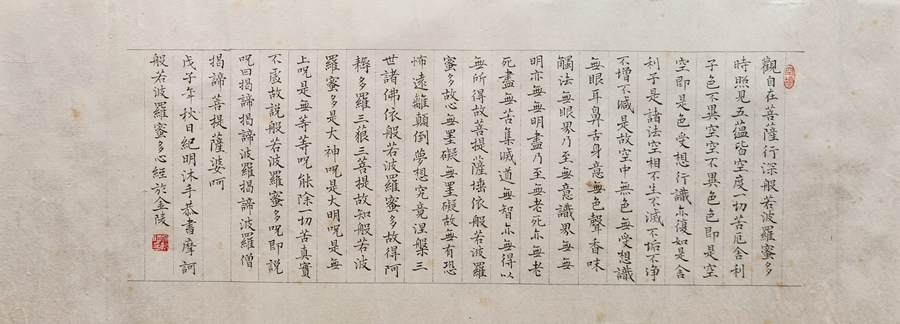 觀自在菩薩行深般若波羅蜜多
時照見五蘊皆空度一切苦厄舍利
子色不異空空不異色色即是空
空即是色受想行識亦復如是舍
利子是諸法空相不生不滅不垢不淨
不增不減是故空中無色無受想識
無眼耳鼻舌身意無色聲香味
觸法無眼界乃至無意識界無無
明亦無無明盡乃至無老死亦無老
死盡無苦集滅道無智亦無得以
無所得故菩提薩埵依般若波羅
蜜多故心無罣礙無罣礙故無有恐
怖遠離顛倒夢想究竟涅槃三
世諸佛依般若波羅蜜多故得阿
耨多羅三藐三菩提故知般若波
羅蜜多是大神呪是大明呪是無
上呪是無等等呪能除一切苦真實
不虛故說般若波羅蜜多呪即說
呪曰揭諦揭諦波羅揭諦波羅僧
揭諦菩提薩婆訶
戊子年秋日紀明沐手恭書摩訶
般若波羅蜜多心經於金陵